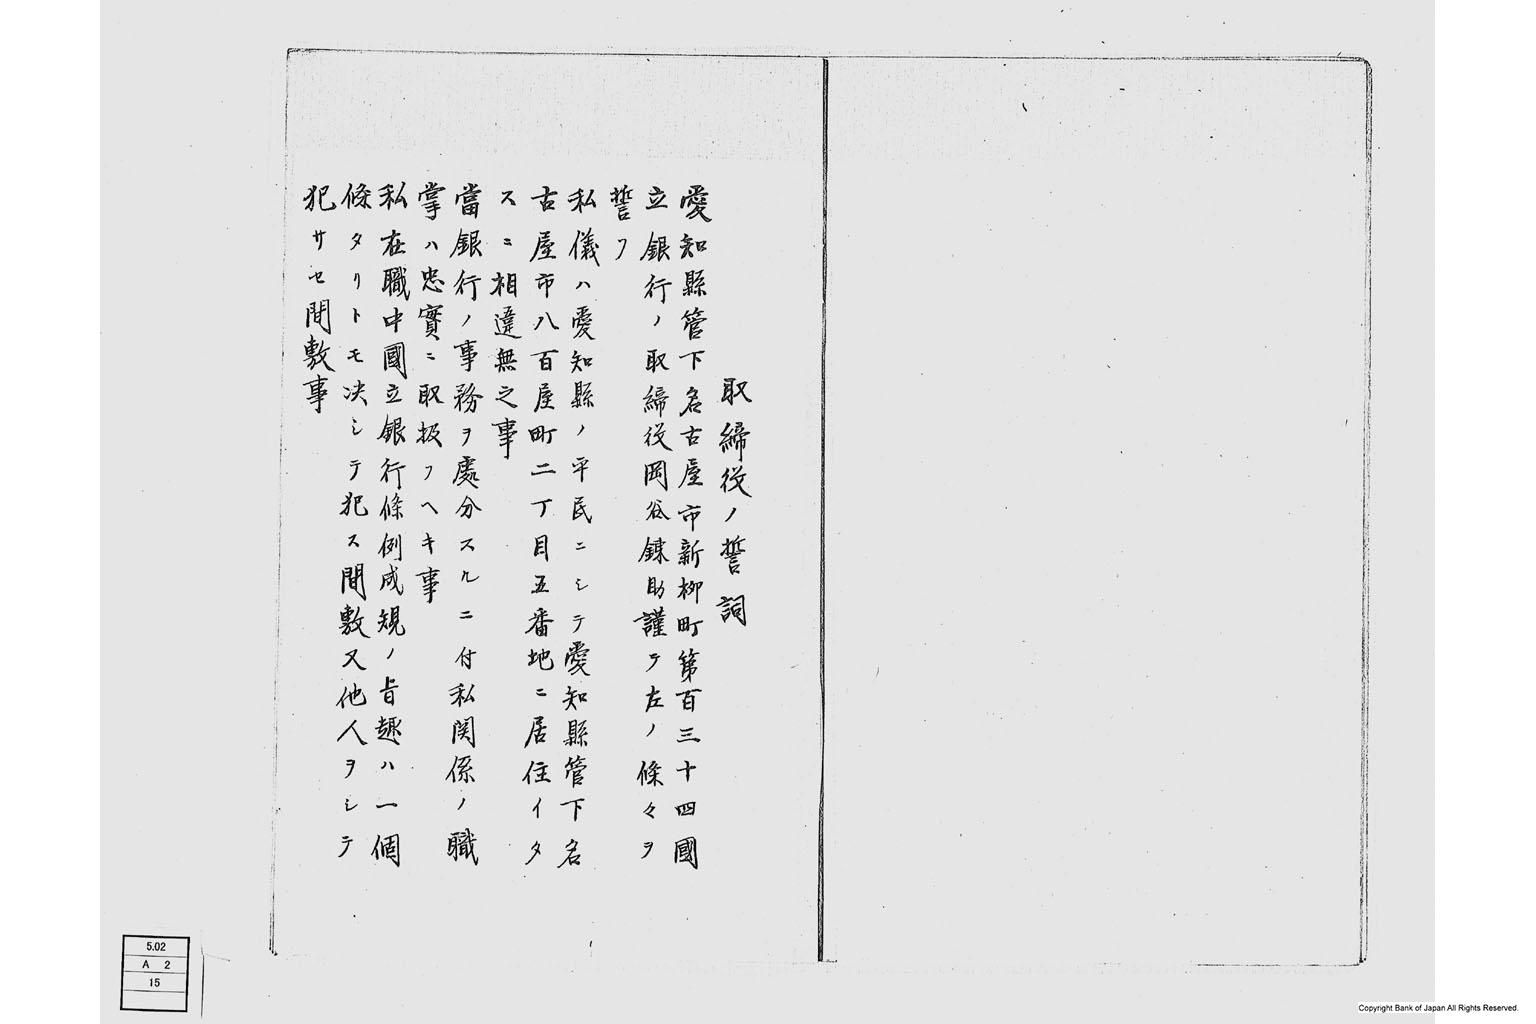 取締役ノ誓詞
愛知縣管下名古屋市新柳町第百三十四國
立銀行ノ取締役岡谷鍊助謹テ左ノ條々ヲ
誓フ
私儀ハ愛知縣ノ平民ニシテ愛知縣管下名
古屋市八百屋町二丁目五番地ニ居住イタ
スニ相違無之事
當銀行ノ事務ヲ處分スルニ付私関係ノ職
掌ハ忠實ニ取扱フヘキ事
私在職中國立銀行條例成規ノ旨趣ハ一個
條タリトモ决シテ犯ス間敷又他人ヲシテ
犯サセ間敷事
5.02
A 2
15
Copyright Bank of Japan All Rights Reserved.